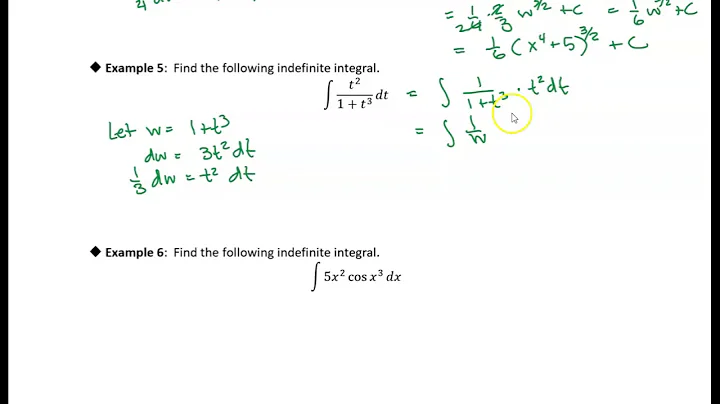 = 1/24 · 2/3 w^3/2 + C = 1/6 w^3/2 + C
= 1/6 (x^4 + 5)^3/2 + C
◆ Example 5: Find the following indefinite integral.
∫ t^2/(1 + t^3) dt = ∫ 1/(1+t^3) · t^2 dt
Let w = 1+t^3
= ∫ 1/w
dw = 3t^2 dt
1/3 dw = t^2 dt
◆ Example 6: Find the following indefinite integral.
∫ 5x^2 cos x^3 dx